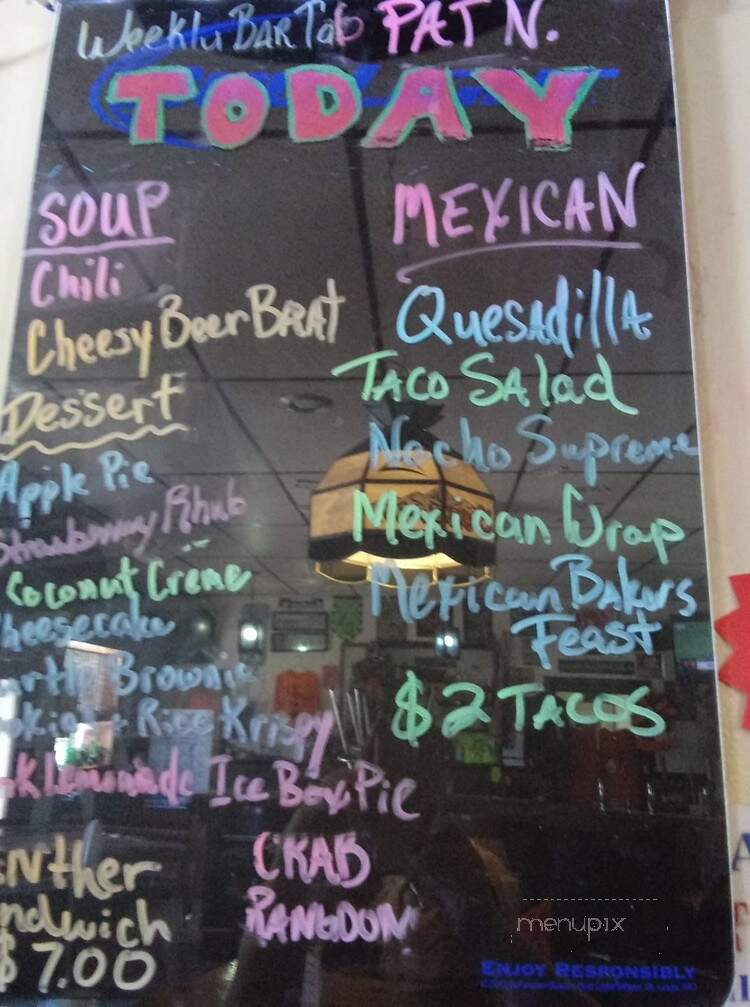 Weekly BAR Tab PAT N.
TODAY
SOUP
Chili
Cheesy Beer BRAT
Dessert
Apple Pie
Strawberry Rhub
Coconut Creme
heesecake
urtle Brownie
okies + Rice Krispy
nk Lemonade Ice Box Pie
nther
ndwich
$7.00
CRAB
RANGOON
MEXICAN
QuesAdillA
TACO SAlad
Nacho Supreme
Mexican Wrap
Mexican Bakers
Feast
$2 TACOS
menupix
ENJOY RESPONSIBLY